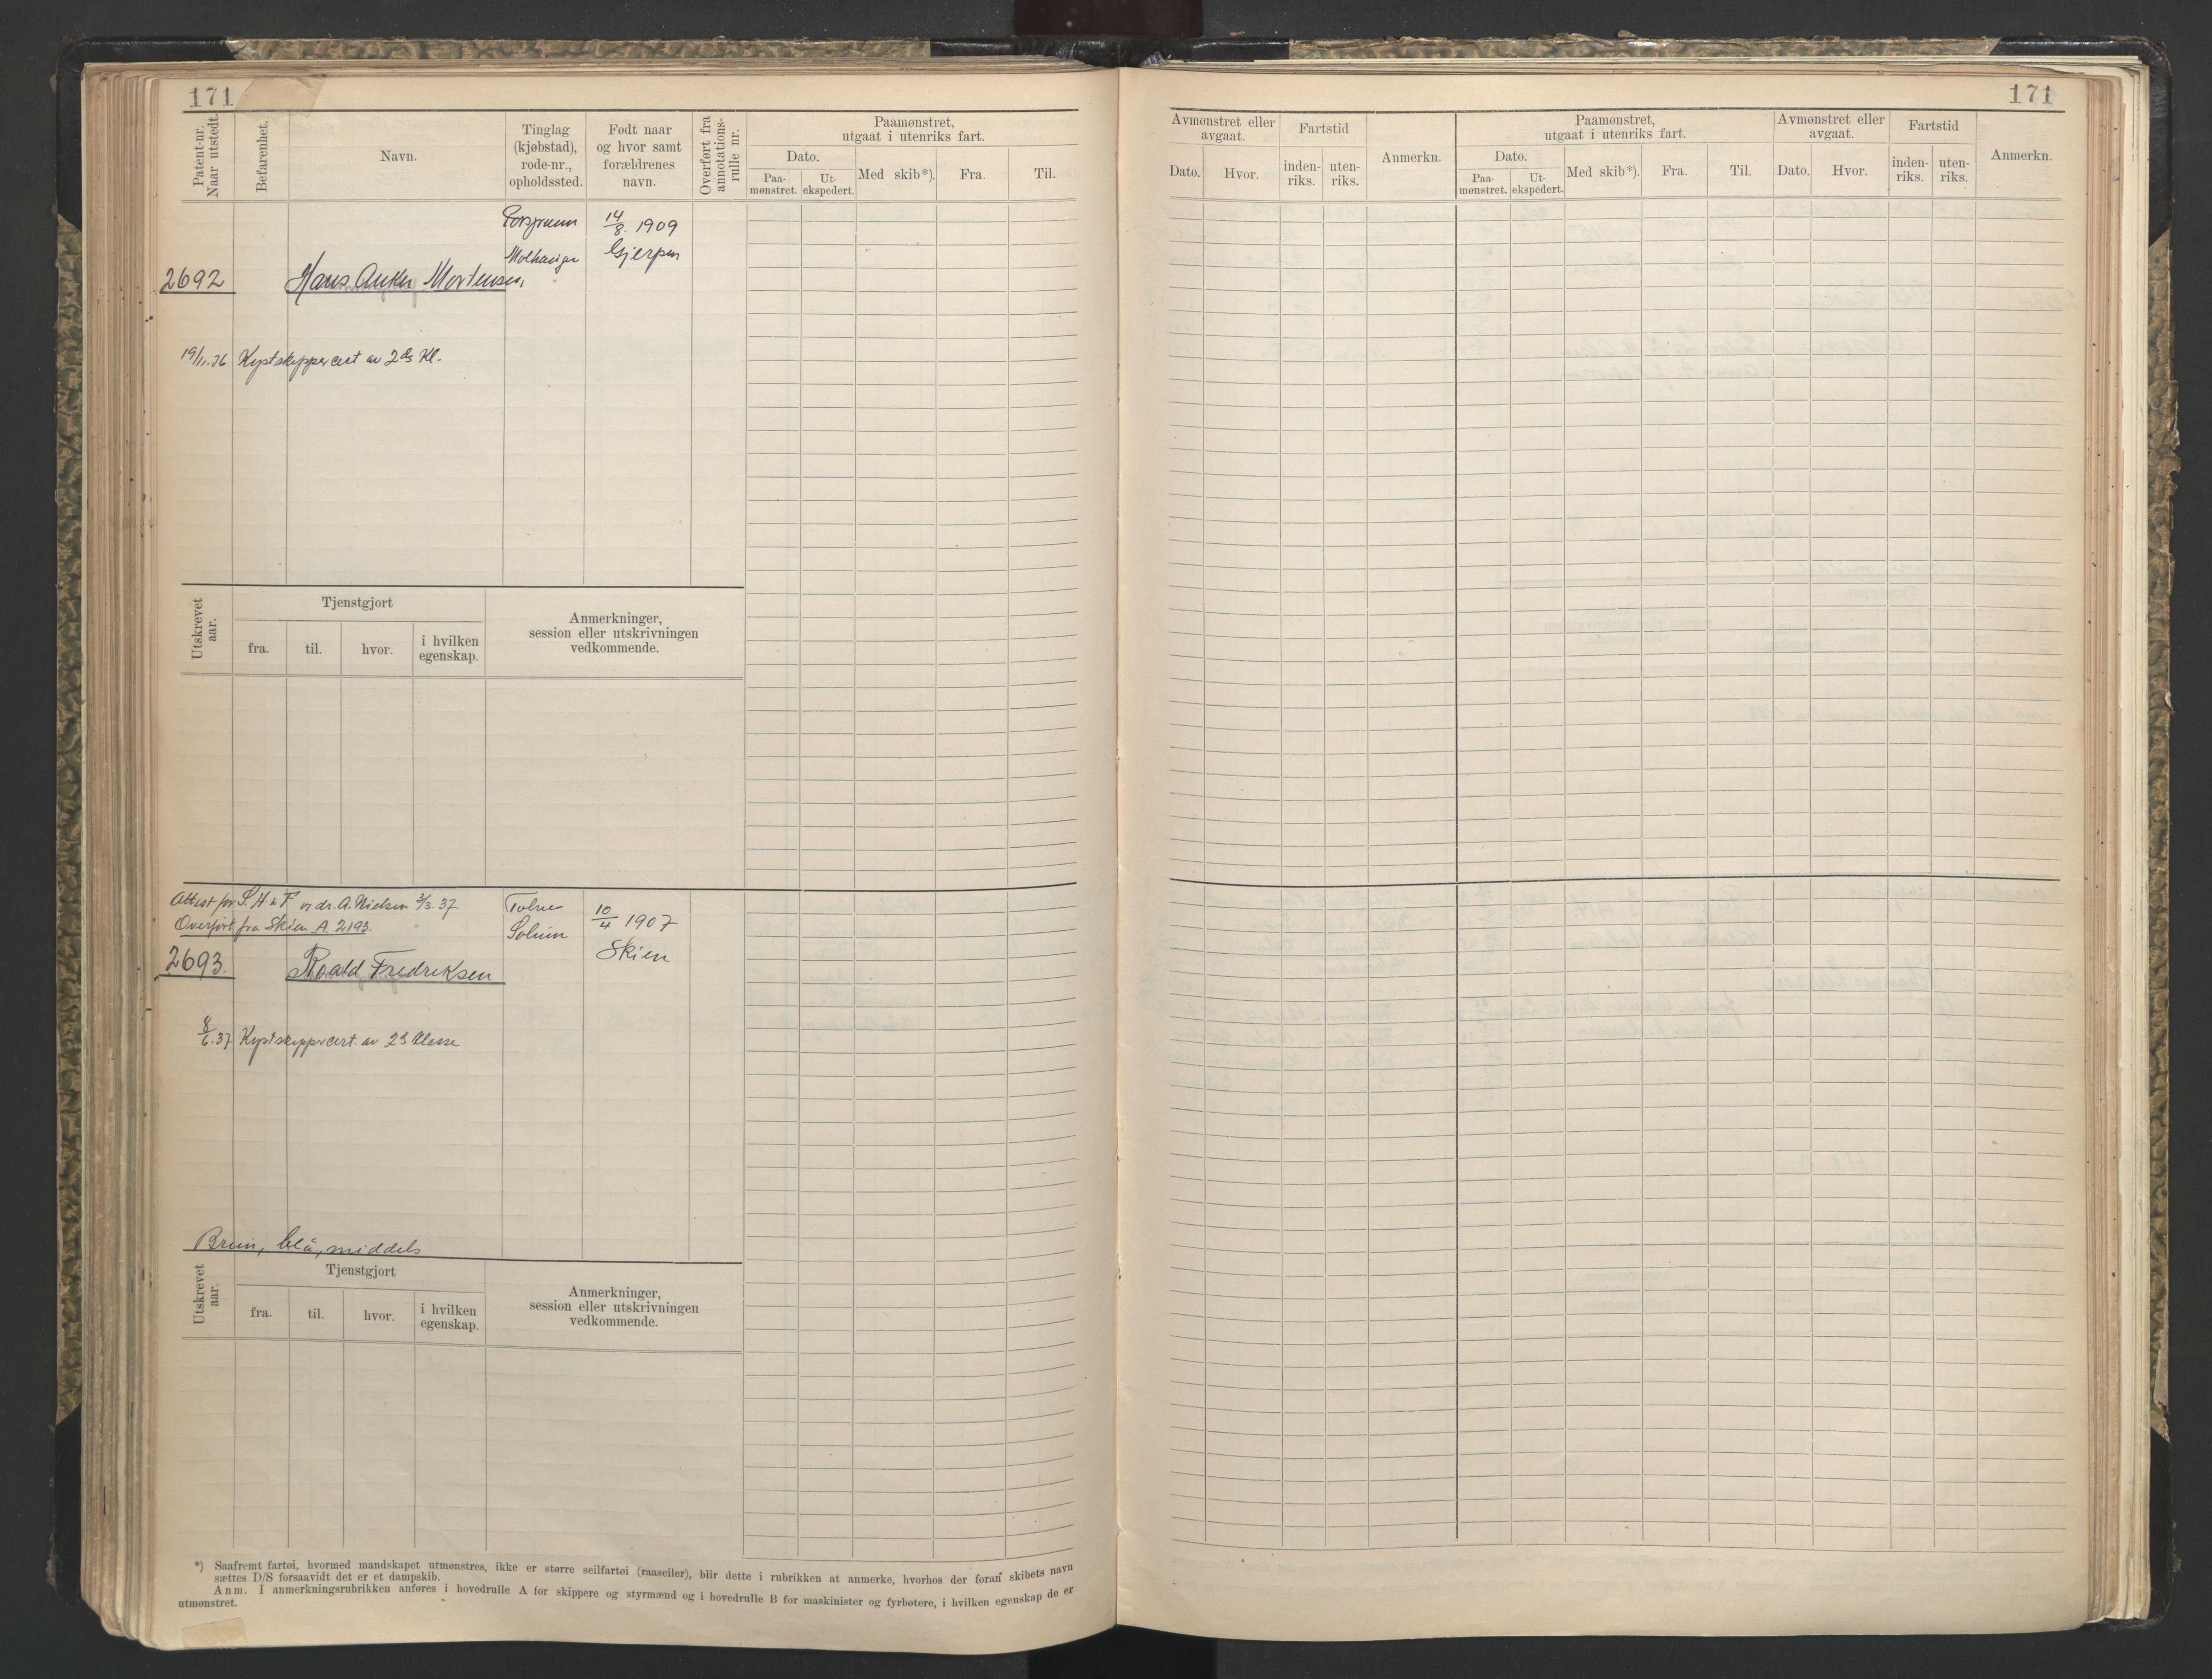 171
Patent-nr. Naar utstedt.
Befarenhet.
Navn.
Tinglag (kjøbstad), rode-nr., opholdssted.
Født naar og hvor samt forældrenes navn.
Overført fra annotations-rulle nr.
Paamønstret, utgaat i utenriks fart.
Dato.
Paa-mønstret.
Ut-ekspedert.
Med skib*).
Fra.
Til.
Porsgrunn 14/8. 1909
Gjerpen
2692 Hans Anker Mortensen,
19/11.36 Kystskippercert av 2ds Kl.
Utskrevet aar.
Tjenstgjort
fra.
til.
hvor.
i hvilken egenskap.
Anmerkninger, session eller utskrivningen vedkommende.
Attest for S. H & F v. dr. A. Nielsen 3/3. 37
Overført fra Skien A. 2193.
Solum
10/4 1907
Skien
2693. Roald Fredriksen
8/6.37 Kystskippercert. av 2d Klasse
Brun, blå, middels
Utskrevet aar.
Tjenstgjort
fra.
til.
hvor.
i hvilken egenskap.
Anmerkninger, session eller utskrivningen vedkommende.
*) Saafremt fartøi, hvormed mandskapet utmønstres, ikke er større seilfartøi (raaseiler), blir dette i rubrikken at anmerke, hvorhos der foran skibets navn
sættes D/S forsaavidt det er et dampskib.
Anm. I anmerkningsrubrikken anføres i hovedrulle A for skippere og styrmænd og i hovedrulle B for maskinister og fyrbøtere, i hvilken egenskap de er
utmønstret.
171
Avmønstret eller avgaat.
Dato.
Hvor.
Fartstid
inden-riks.
uten-riks.
Anmerkn.
Paamønstret, utgaat i utenriks fart.
Dato.
Paa-mønstret.
Ut-ekspedert.
Med skib*).
Fra.
Til.
Avmønstret eller avgaat.
Dato.
Hvor.
Fartstid
inden-riks.
uten-riks.
Anmerkn.